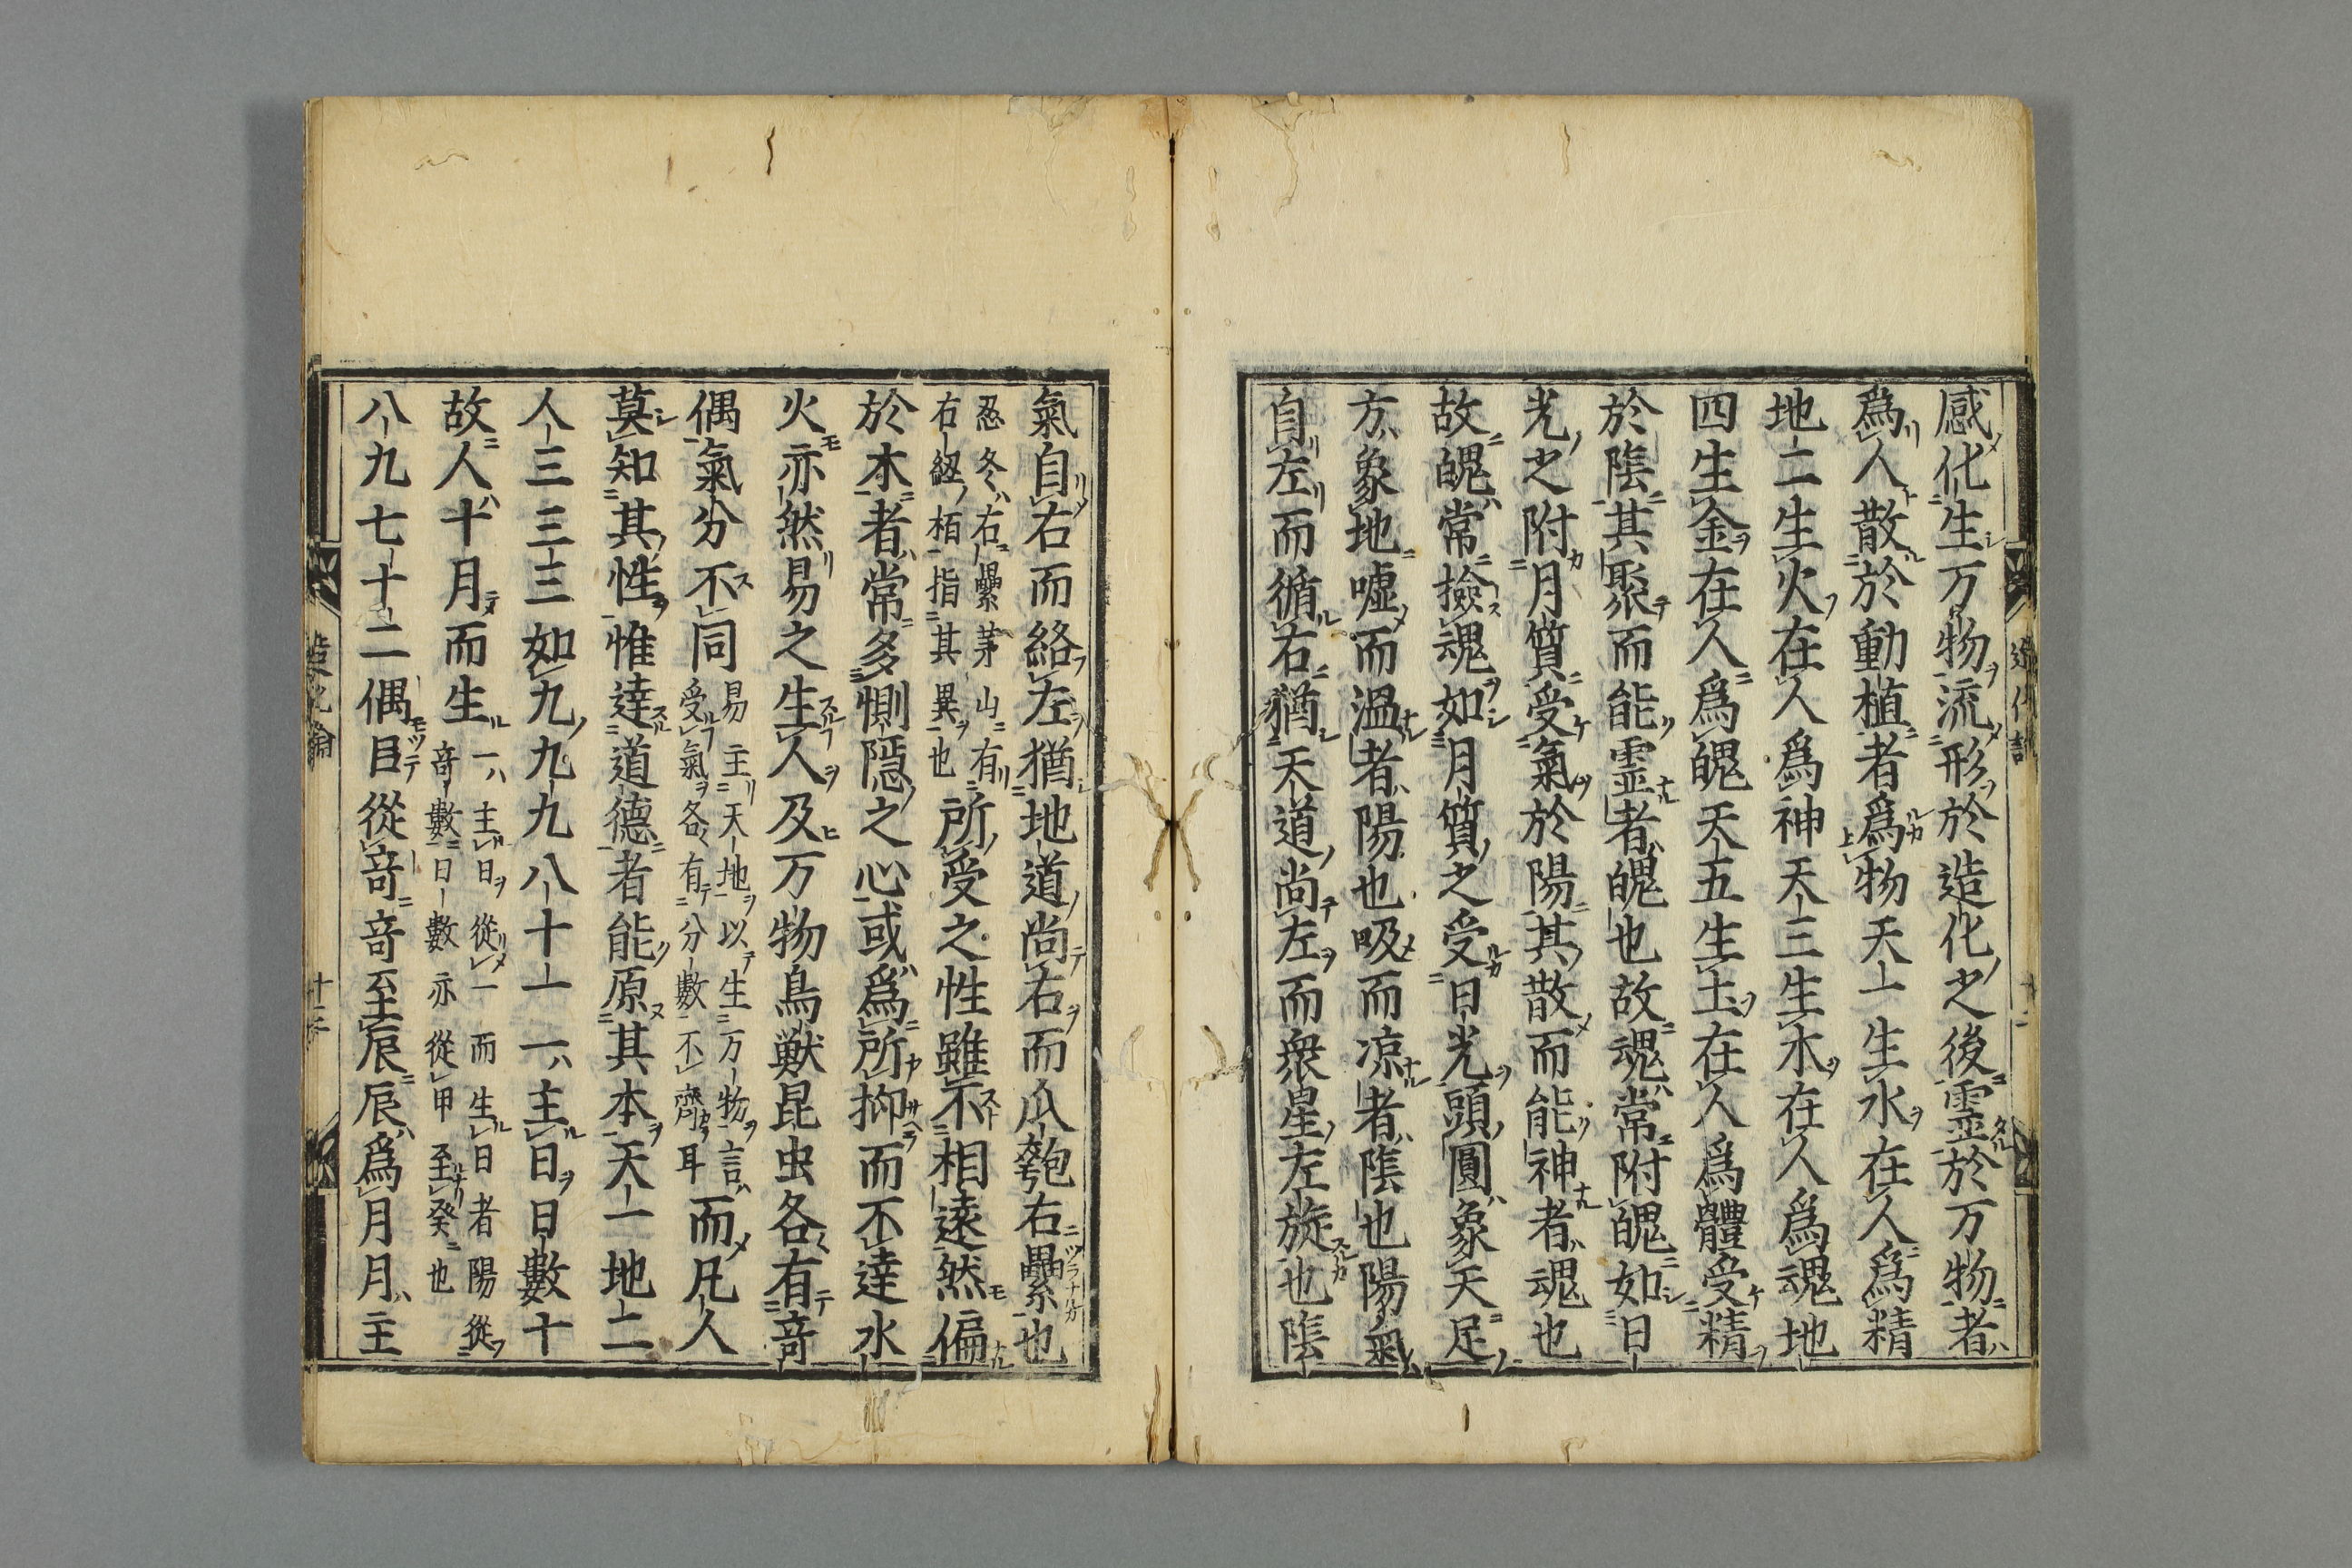 感化生万物流形於造化之後霊於万物者
爲人散於動植者爲物天一生水在人爲精
地二生火在人爲神天三生木在人爲魂地
四生金在人爲魄天五生土在人爲體受精
於陰其聚而能霊者魄也故魂常附魄如日
光之附月質受氣於陽其散而能神者魂也
故魄常撿魂如月質之受日光頭圓象天足
方象地嘘而温者陽也吸而凉者陰也陽氣
自左而循右猶天道尚左而衆星左旋也陰
氣自右而絡左猶地道尚右而瓜匏右纍也
忍冬右纍茅山有
右經栢指其異也
所受之性雖不相遠然偏
於木者常多惻隠之心或爲所抑而不達水
火亦然易之生人及万物鳥獣昆虫各有竒
偶氣分不同
易主天地以生万物言
受氣各有分數不齊耳
而凡人
莫知其性惟達道德者能原其本天一地二
人三三三如九九九八十一一主日日數十
故人十月而生
一主日從一而生日者陽從
竒數日數亦從甲至癸也
八九七十二偶目從竒竒至辰辰爲月月主
造化論
十二